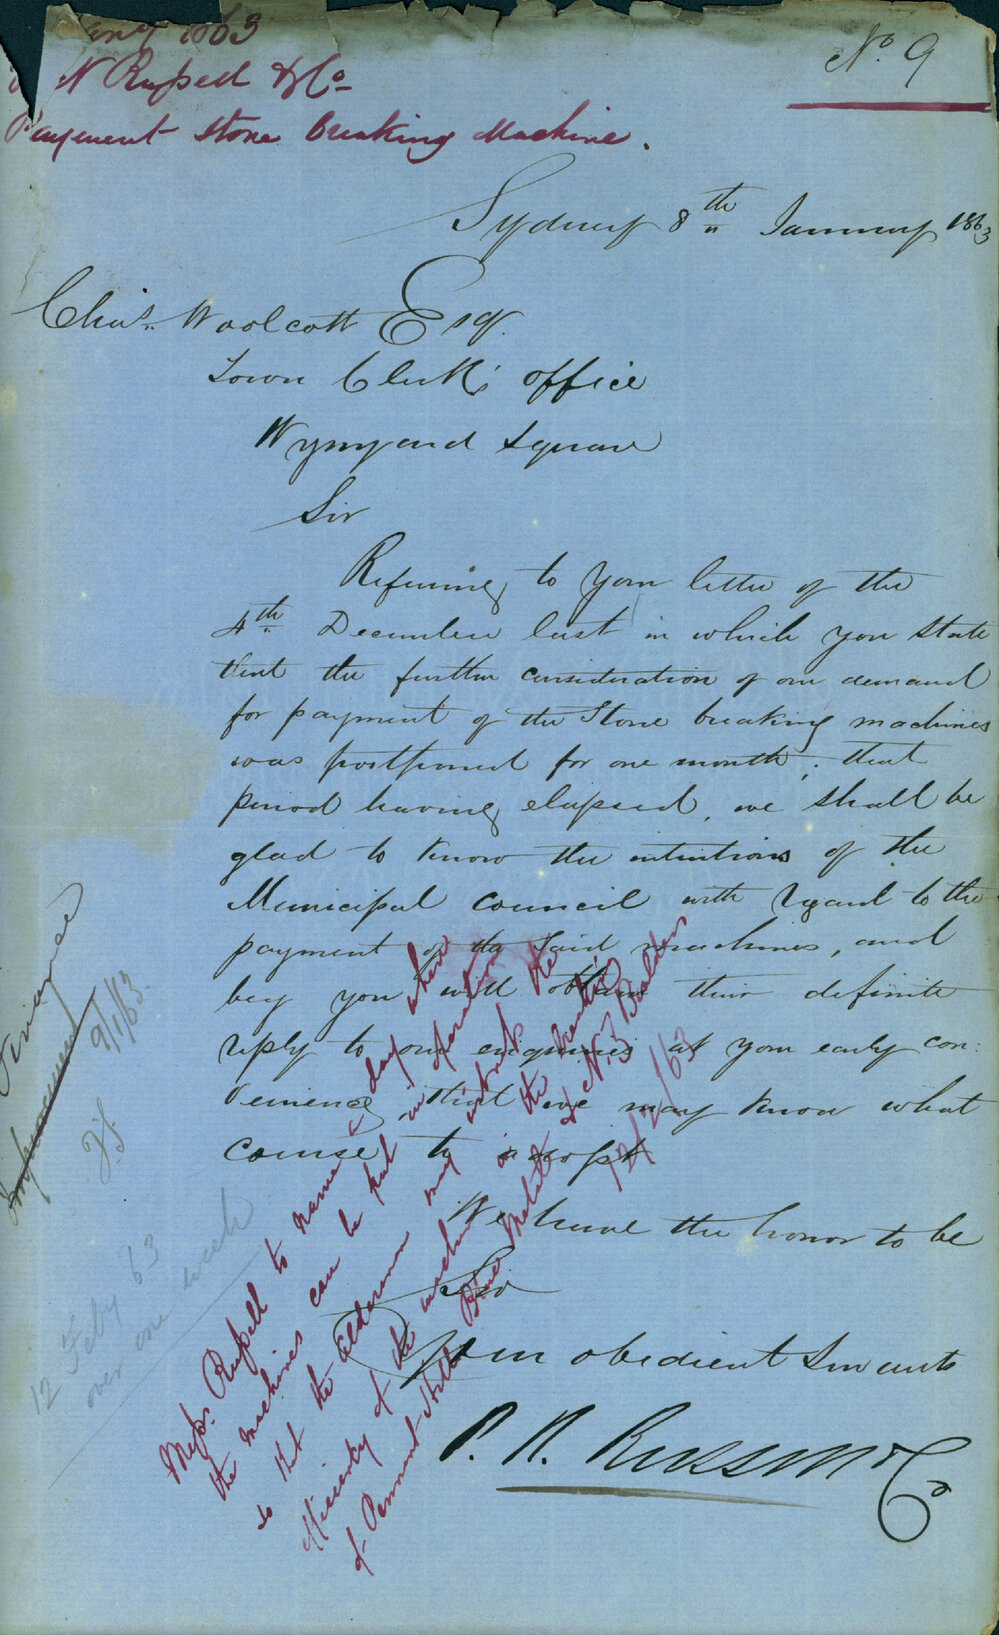 1863
N Russell & Co
Payment Stone breaking Machine.
No. 9
Sydney 8th January 1863
Chas. Woolcott Esq.
Town Clerk's Office
Wynyard Square
Sir
Referring to your letter of the
4th December last in which you state
that the further consideration of our demand
for payment of the Stone breaking machines
was postponed for one month; that
period having elapsed, we shall be
glad to know the intentions of the
Municipal Council with regard to the
payment of the said machines, and
beg you will obtain their definite
reply to our enquiries at your early con:
venience, that we may know what
course to adopt
We have the honor to be
Sir
Your obedient Servants
P. N. Russell & Co
Finance
Improvement
9/1/63.
12 Feby 63
over one week
Messrs. Russell to name day when
the machines can be put in operation
so that the Aldermen may witness the
efficiency of the machine in the breaking
of Pennant Hills Blue Metal & N. 3 Boulders
12/2/63